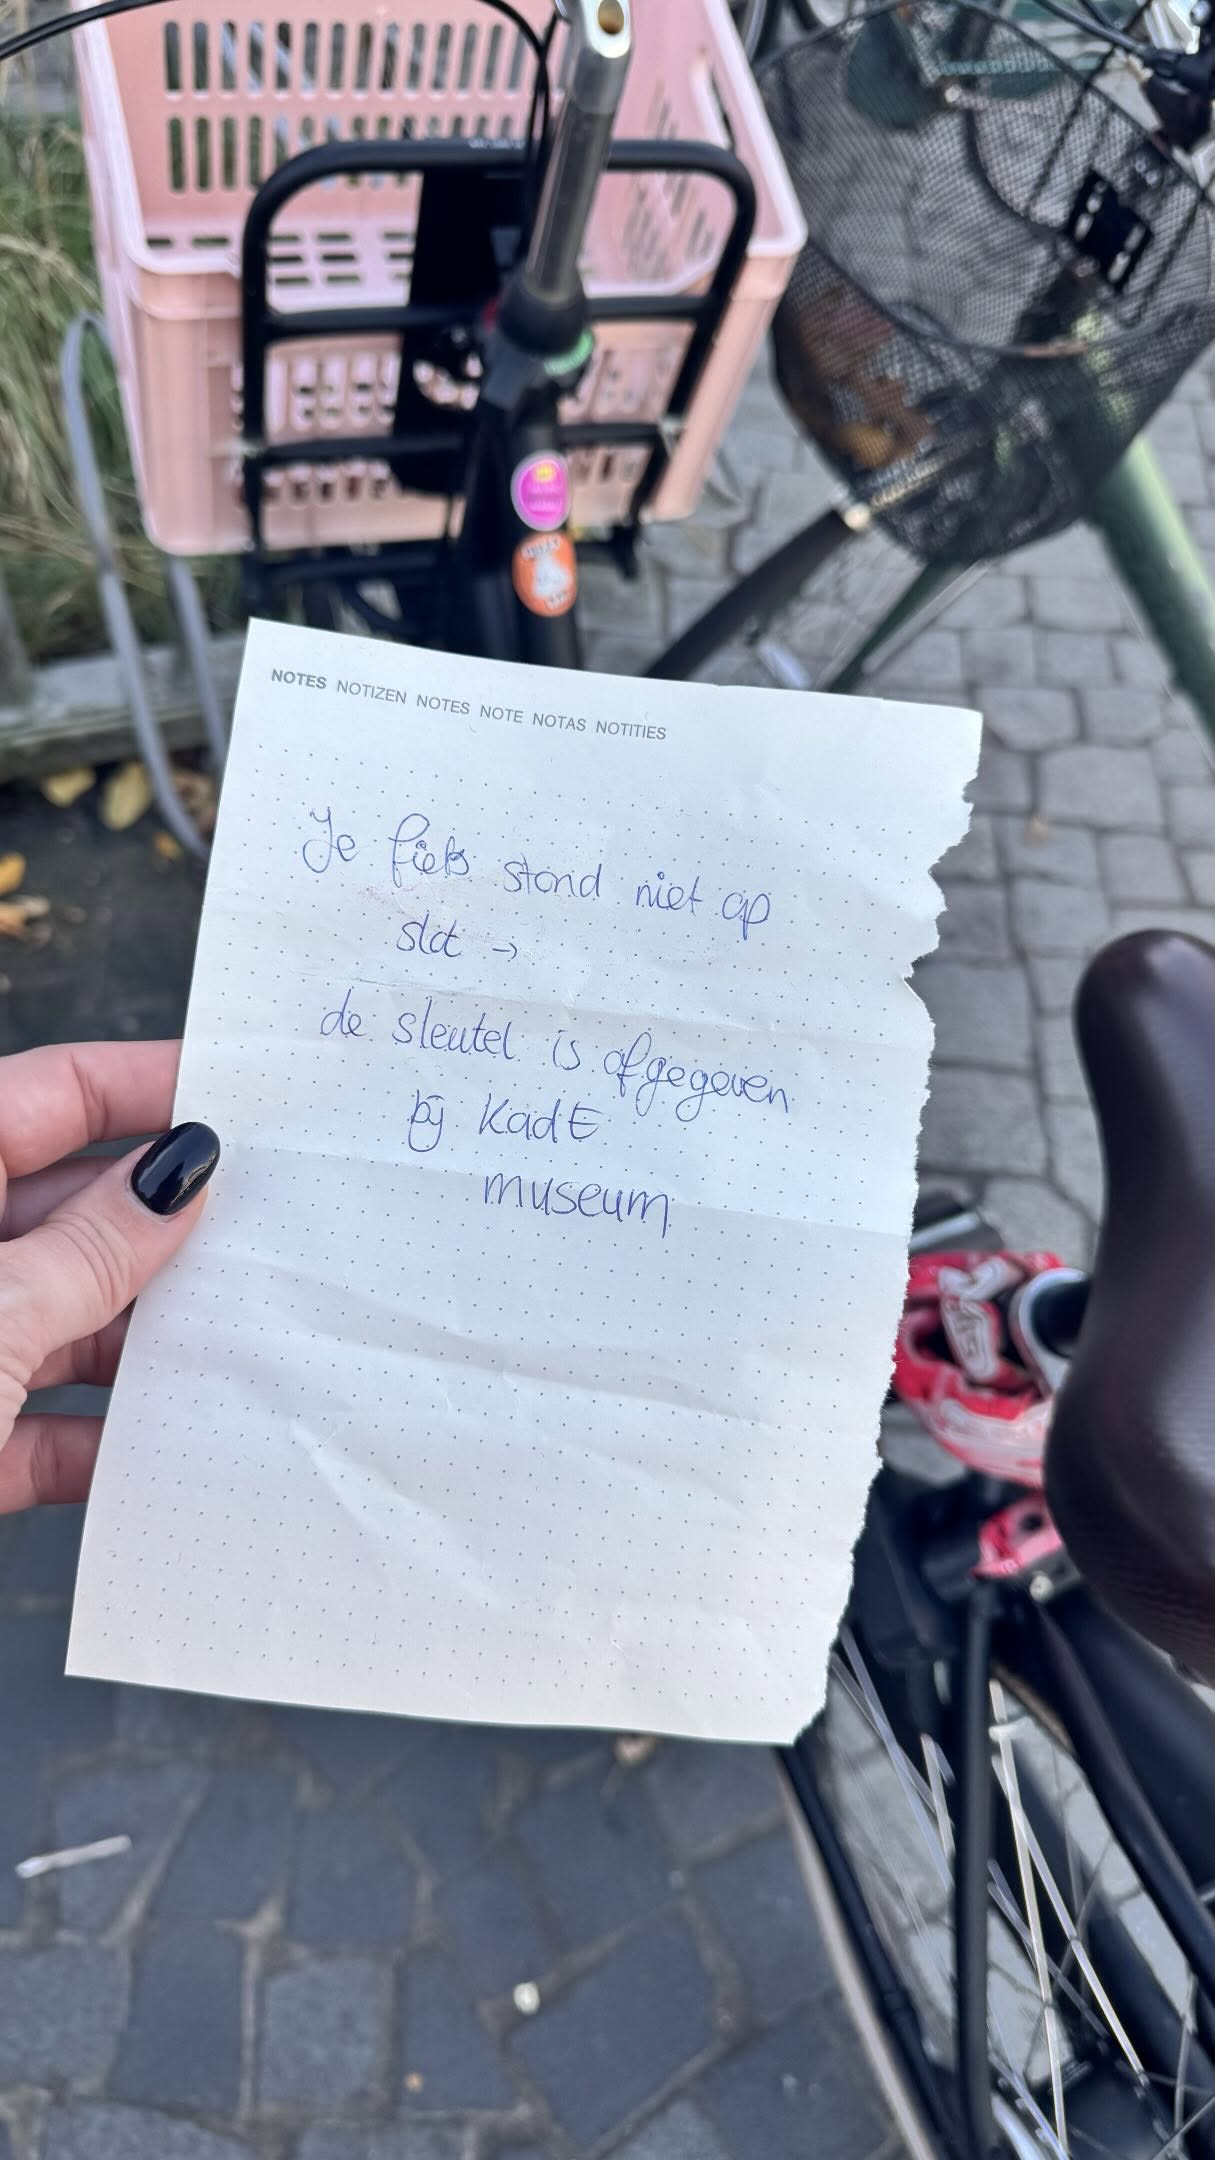 NOTES NOTIZEN NOTES NOTE NOTAS NOTITIES
Je fiets stond niet op
slot →
de sleutel is afgegeven
bij KadE
museum